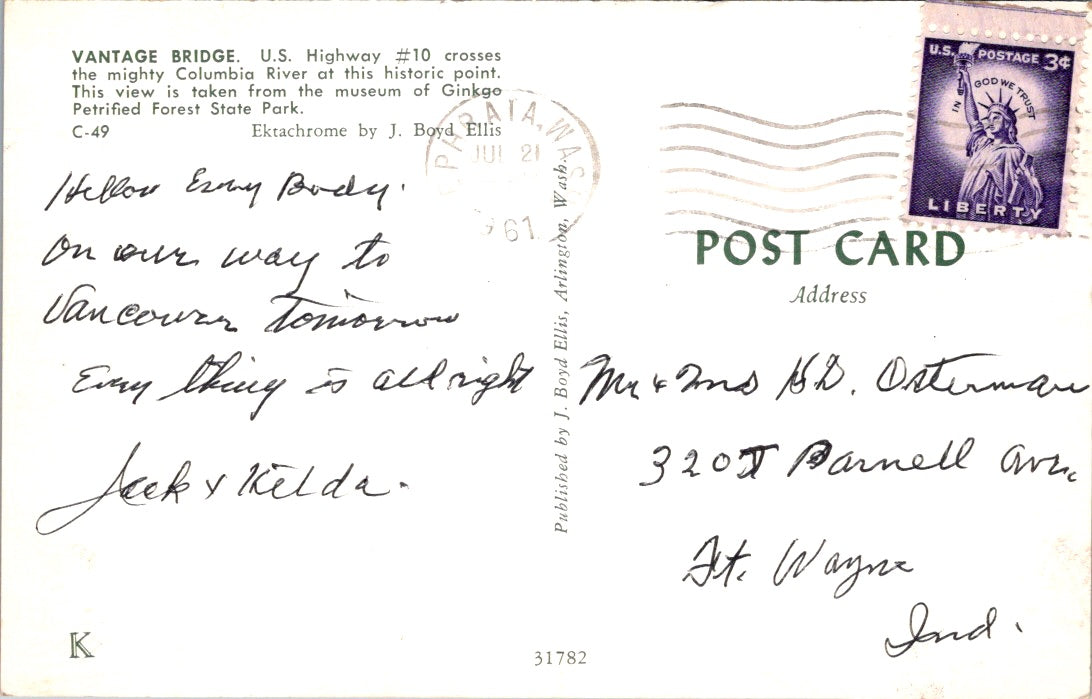 VANTAGE BRIDGE. U.S. Highway #10 crosses
the mighty Columbia River at this historic point.
This view is taken from the museum of Ginkgo
Petrified Forest State Park.
C-49 Ektachrome by J. Boyd Ellis
EPHRATA, WASH.
JUL 21
1961
U.S. POSTAGE 3¢
IN GOD WE TRUST
LIBERTY
Hellow Every Body.
On our way to
Vancouver tomorrow
Every thing is all right
Jack & Hilda.
POST CARD
Address
Mr & Mrs H.D. Osterman
320 Parnell Ave.
Ft. Wayne
Ind.
Published by J. Boyd Ellis, Arlington, Wash.
K
31782